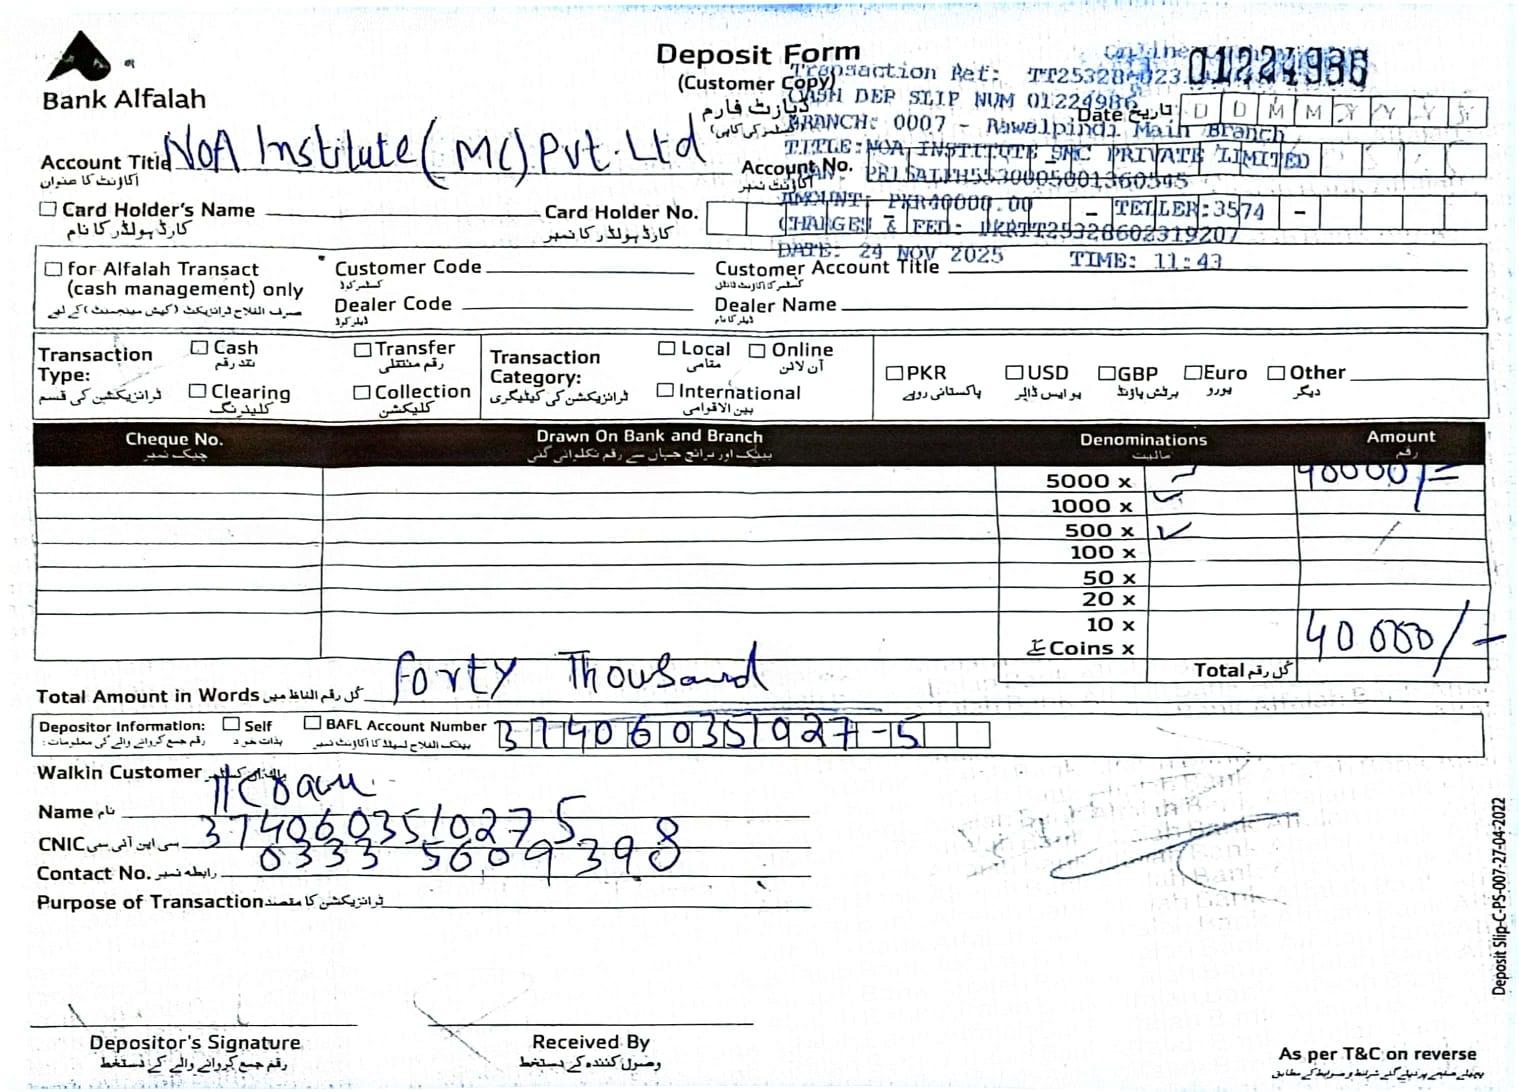 Bank Alfalah
Deposit Form
(Customer Copy)
ڈپازٹ فارم
(کسٹمر کی کاپی)
01224986
Transaction Ref: TT25328
CASH DEP SLIP NUM 01224986
BRANCH: 0007 - Rawalpindi Main Branch
TITLE: NOA INSTITUTE SMC PRIVATE LIMITED
AMOUNT: PKR40000.00
TELLER:3574
CHARGES & FED:
DATE: 24 NOV 2025 TIME: 11:43
Date تاریخ D D M M Y Y Y Y
Account Title NOA Institute (MC) Pvt. Ltd
اکاؤنٹ کا عنوان
Account No.
اکاؤنٹ نمبر
Card Holder's Name
کارڈ ہولڈر کا نام
Card Holder No.
کارڈ ہولڈر کا نمبر
for Alfalah Transact
(cash management) only
صرف الفلاح ٹرانزیکٹ (کیش مینجمنٹ) کے لیے
Customer Code
کسٹمر کوڈ
Customer Account Title
کسٹمر کا اکاؤنٹ ٹائٹل
Dealer Code
ڈیلر کوڈ
Dealer Name
ڈیلر کا نام
Transaction Type:
ٹرانزیکشن کی قسم
Cash
نقد رقم
Transfer
رقم منتقلی
Clearing
کلیئرنگ
Collection
کلیکشن
Transaction Category:
ٹرانزیکشن کی کیٹیگری
Local
مقامی
Online
آن لائن
International
بین الاقوامی
PKR
پاکستانی روپے
USD
یو ایس ڈالر
GBP
برٹش پاؤنڈ
Euro
یورو
Other
دیگر
Cheque No. Drawn On Bank and Branch Denominations Amount
چیک نمبر بینک اور برانچ جہاں سے رقم نکلوائی گئی مالیت رقم
5000 x 40000/=
1000 x
500 x
100 x
50 x
20 x
10 x
Coins x
Total کل رقم 40000/-
Total Amount in Words کل رقم الفاظ میں Forty Thousand
Depositor Information: Self BAFL Account Number 374060351027-5
رقم جمع کروانے والے کی معلومات: بذات خود بینک الفلاح لمیٹڈ کا اکاؤنٹ نمبر
Walkin Customer
Name نام
CNIC سی این آئی سی 3740603510275
Contact No. رابطہ نمبر 0333 5609398
Purpose of Transaction ٹرانزیکشن کا مقصد
Depositor's Signature
رقم جمع کروانے والے کی دستخط
Received By
وصول کنندہ کے دستخط
As per T&C on reverse
Deposit Slip-C-PS-007-27-04-2022